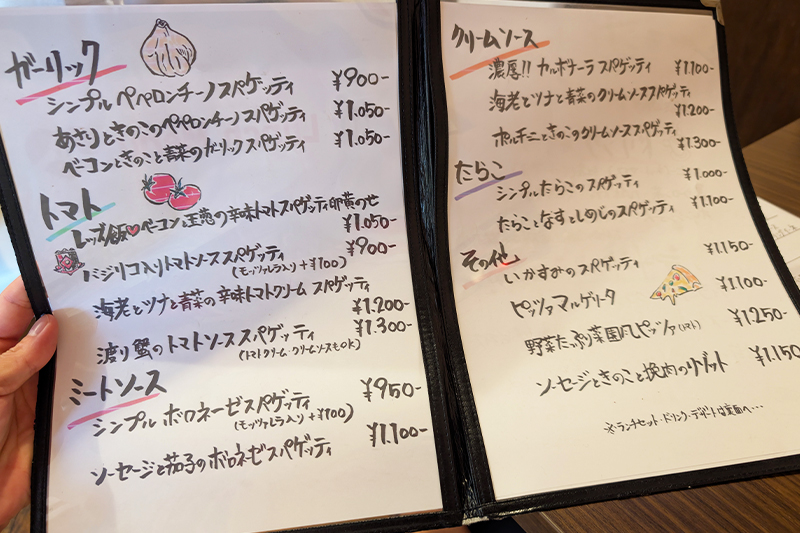 ガーリック
シンプルペペロンチーノスパゲッティ ¥900-
あさりときのこのペペロンチーノスパゲッティ ¥1.050-
ベーコンときのこと青菜のガーリックスパゲッティ ¥1.050-
トマト
レッズ飯♡ベーコンと玉葱の辛味トマトスパゲッティ卵黄のせ
¥1.050-
バジリコ入りトマトソーススパゲッティ ¥900-
(モッツァレラ入り+¥100)
海老とツナと青菜の辛味トマトクリームスパゲッティ
¥1.200-
渡り蟹のトマトソーススパゲッティ ¥1.300-
(トマトクリーム・クリームソースもOK)
ミートソース
シンプルボロネーゼスパゲッティ ¥950-
(モッツァレラ入り+¥100)
ソーセージと茄子のボロネーゼスパゲッティ ¥1.100-
クリームソース
濃厚!!カルボナーラスパゲッティ ¥1.100-
海老とツナと青菜のクリームソーススパゲッティ
¥1.200-
ポルチーニときのこのクリームソーススパゲッティ
¥1.300-
たらこ
シンプルたらこのスパゲッティ ¥1.000-
たらことなすとしめじのスパゲッティ ¥1.100-
その他
いかすみのスパゲッティ ¥1.150-
ピッツァマルゲリータ ¥1.100-
野菜たっぷり菜園風ピッツァ(トマト) ¥1.250-
ソーセージときのこと挽肉のリゾット ¥1.150-
※ランチセット・ドリンク・デザートは裏面へ…